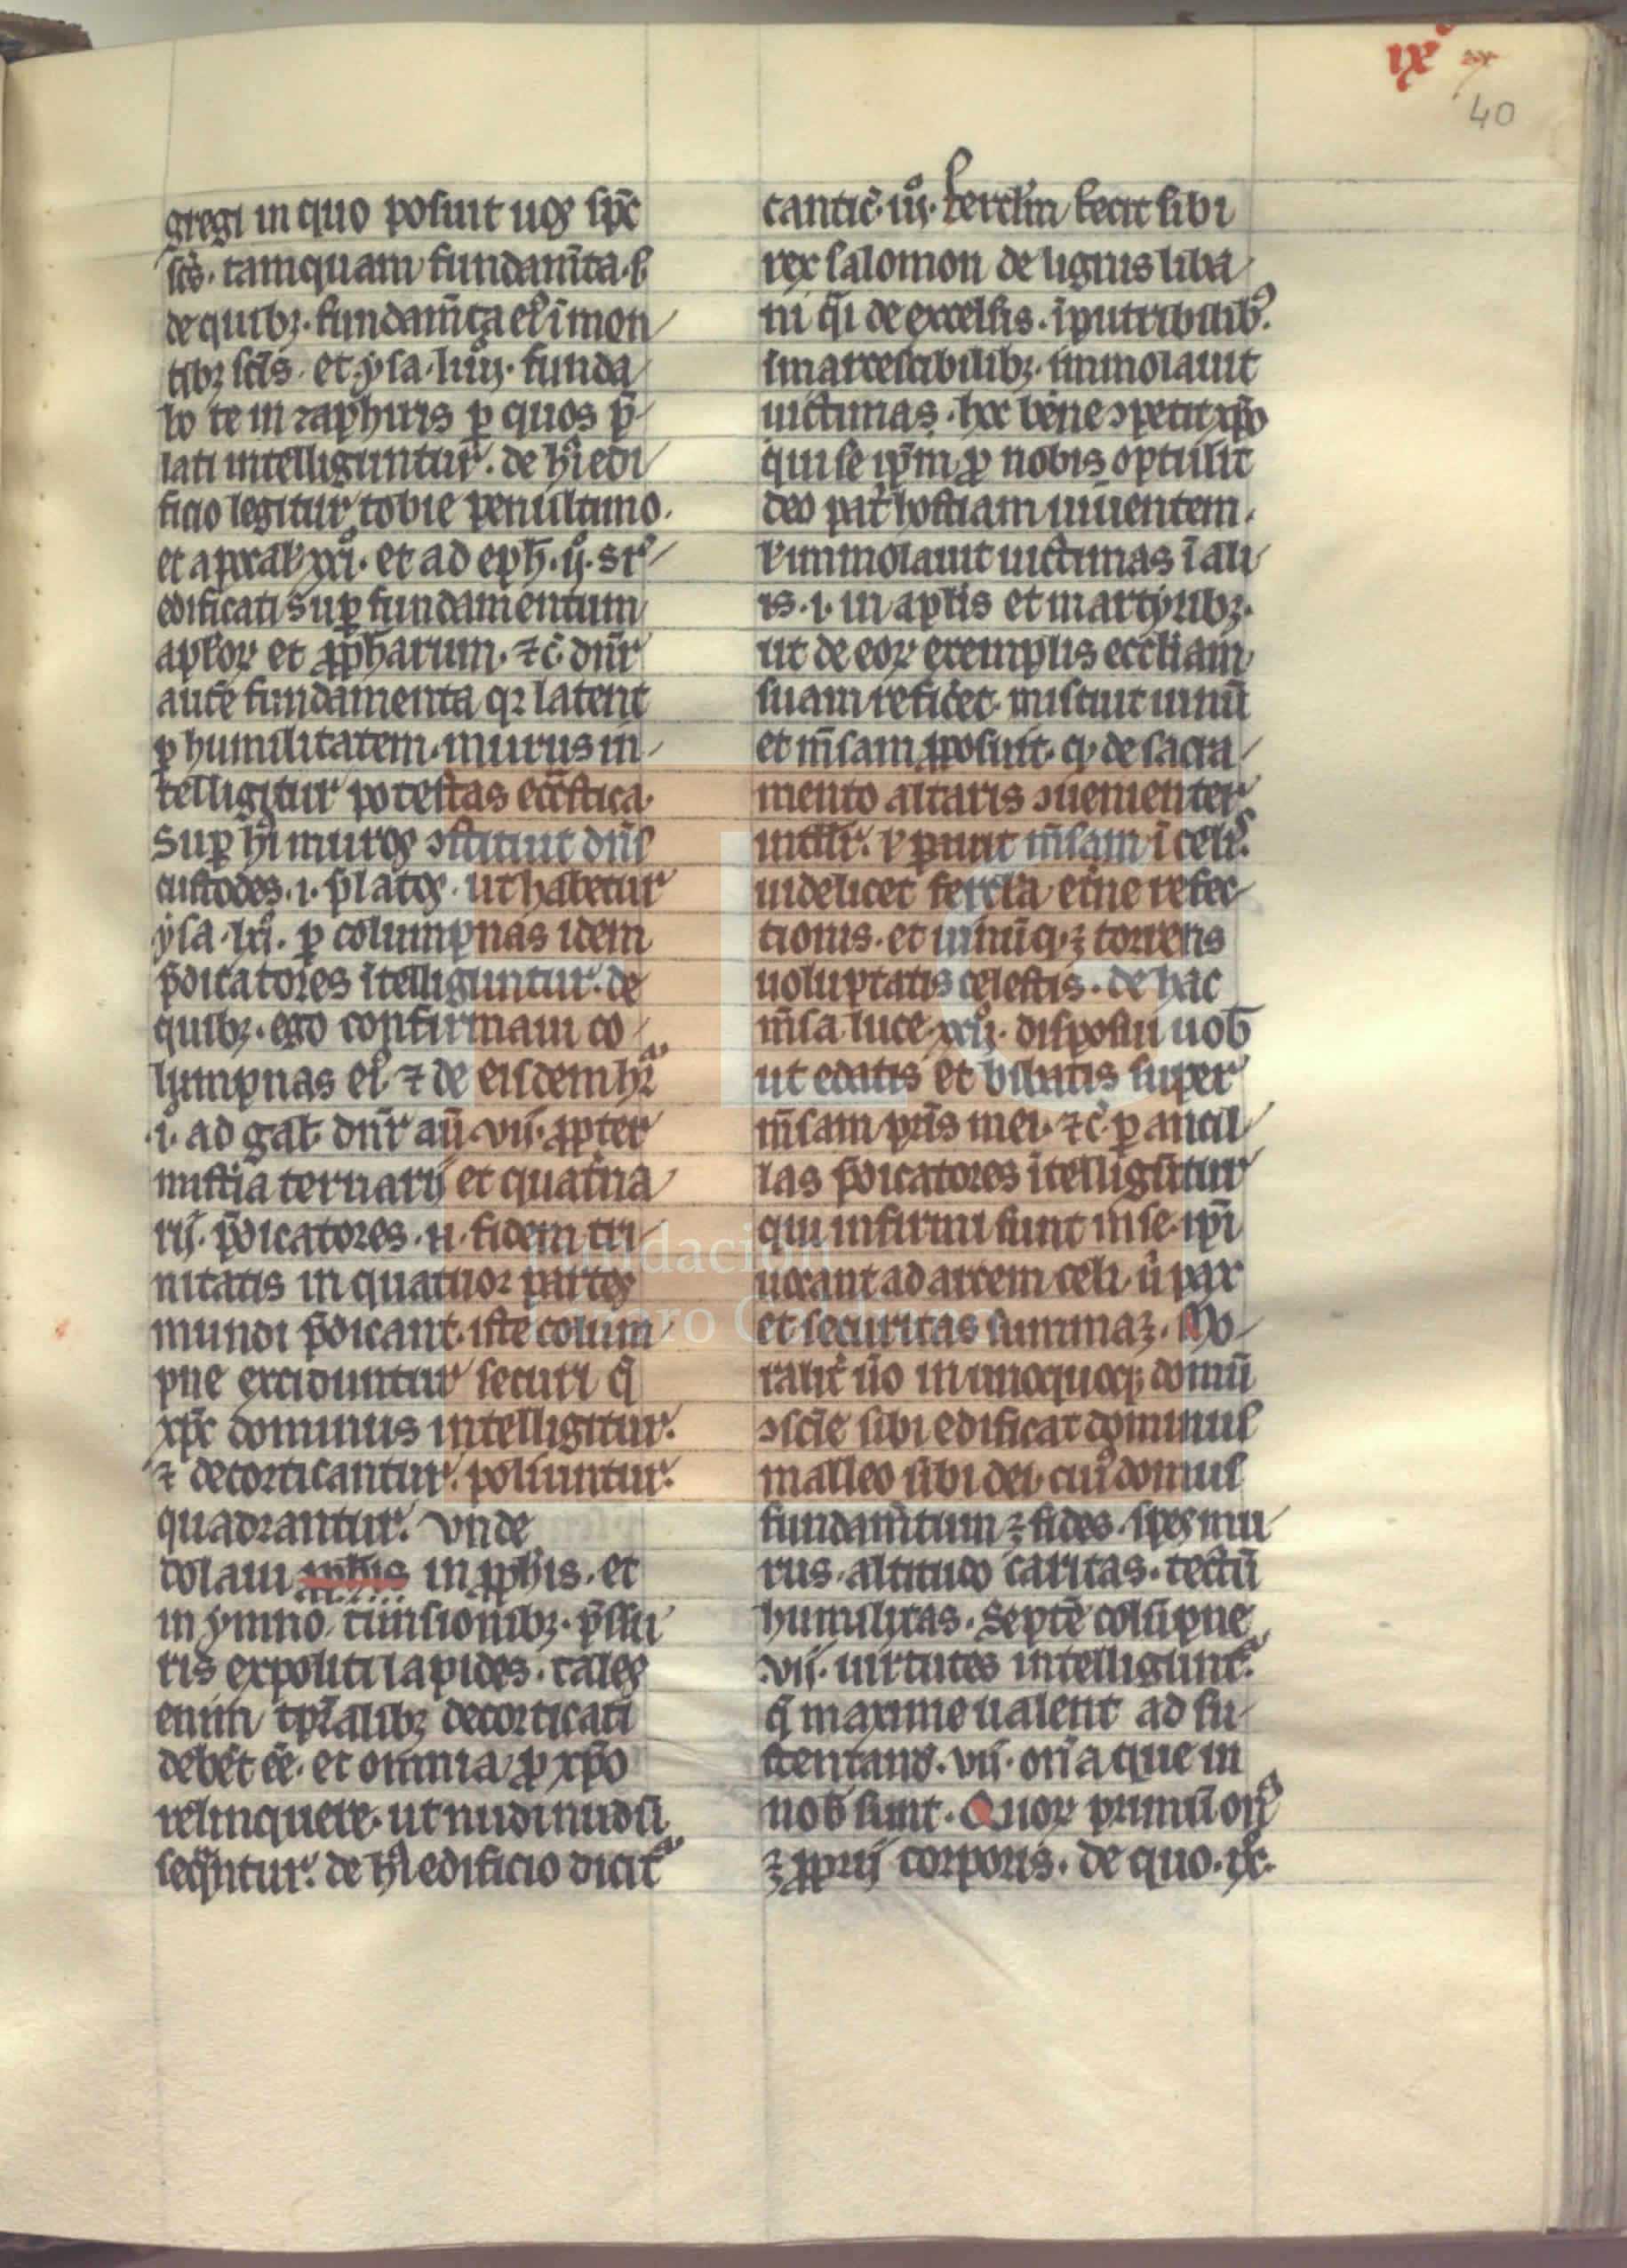 ix
40
gregi in quo posuit uos sp̄c
sc̄s. tamquam fundam̄ta. s
de quibꝫ. fundam̄ta eiꝰ ī mon
tibꝫ sc̄is. et ysa. liiij. funda
bo te in zaphiris ꝑ quos p̄
lati intelliguntur. de h̄ edi
ficio legitur tobie penultimo.
et apocal. xxi. et ad eph̄. ij. sr̄
edificati suꝑ fundamentum
apl'oꝝ et ꝓph̄arum. ⁊c̄ dn̄r
aut̄e fundamenta qꝛ latent
ꝑ humilitatem. murus in
telligitur potestas ecc̄stica.
Suꝑ h̄ muros ɔstituit dn̄s
custodes. i. p̄latos. ut habetur
ysa. lxi. ꝑ columpnas idem
p̄dicatores ītelliguntur. de
quibꝫ. ego confirmaui co
lumpnas eiꝰ ⁊ de eisdem hr̄
i. ad gal. dn̄r aū. vii. ꝓpter
mist'ia ternarij et quat'na
rij. p̄dicatores. n. fidem tri
nitatis in quatuor partes
mundi p̄dicant. iste colum
pne exciduntur securi q̄
xp̄c dominus intelligitur.
⁊ decorticantur. poliuntur.
quadrantur. Vnde
dolaui ꝓph̄is in ꝓph̄is. et
in ymno. tunsionibꝫ. p̄ssu
ris expoliti lapides. tales
enim tp̄ralibꝫ decorticati
deb̄et ēe. et omnia ꝓ xp̄o
relinquere. ut nudi nudū
seqn̄tur. de h̄ edificio dicit
cantic̄. iij. ferclm̄ fecit sibi
rex salomon de lignis liba
ni q̄i de excelsis. īputribilibꝰ.
īmarcescibilibꝫ. immolauit
uictimas. hoc bene ɔpetit xp̄o
qui se ip̄m ꝓ nobis optulit
deo patr̄ hostiam uiuentem.
ł immolauit uictimas ī ali
is. i. in aplīs et martyribꝫ.
ut de eoꝝ exemplis eccl'iam
suam reficeet. miscuit uinū
et m̄sam ꝓposuit. qd̓ de sacra
mento altaris ɔuenienter
intll'r. ł ꝓpinat m̄sam ī cel'.
uidelicet fercl'a et'ne refec
tionis. et uinūqꝫ torrens
uoluptatis celestis. de hac
m̄sa luce. xxij. disposui uob̄
ut edatis et bibatis super
m̄sam pr̄is mei. ⁊c̄ ꝑ ancil
las p̄dicatores ītelligūtur
qui infirmi sunt in se. ip̄i
uocant ad arcem celi. ū pax
et securitas summa ꝫ. Mo
ralit̄ ūo in unoquoqꝫ domū
ɔscīe sibi edificat dominus
malleo ūbi dei. cuiꝰ domus
fundam̄tum ꝫ fides. spes mu
rus. altitudo caritas. tectū
humilitas. Septē colūpne
.vii. uirtutes intelligunt̄.
q̄ maxime ualent ad su
stentand̄. vii. on̄a que in
nob̄ sunt. Quoꝝ primū on̄
ꝫ ꝓprij corporis. de quo. ꝓc̄.